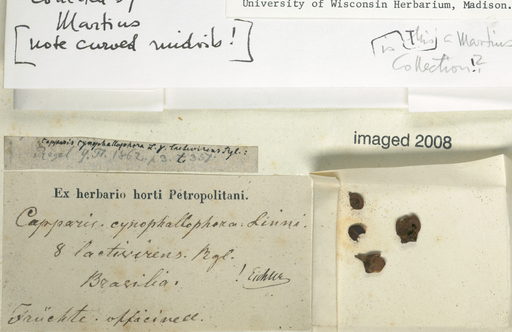 University of Wisconsin Herbarium, Madison.
Martius
[note curved midrib!]
[Is this a Martius
Collection!?
imaged 2008
Capparis cynophallophora L. γ. laetevirens Rgl.:
Regel G. Fl. 1862. p. 3. t. 351.
Ex herbario horti Petropolitani.
Capparis. cynophallophora. Linni.
laetivirens. Rgl.
Brasilia.
! Eichler
Früchte. officinell.